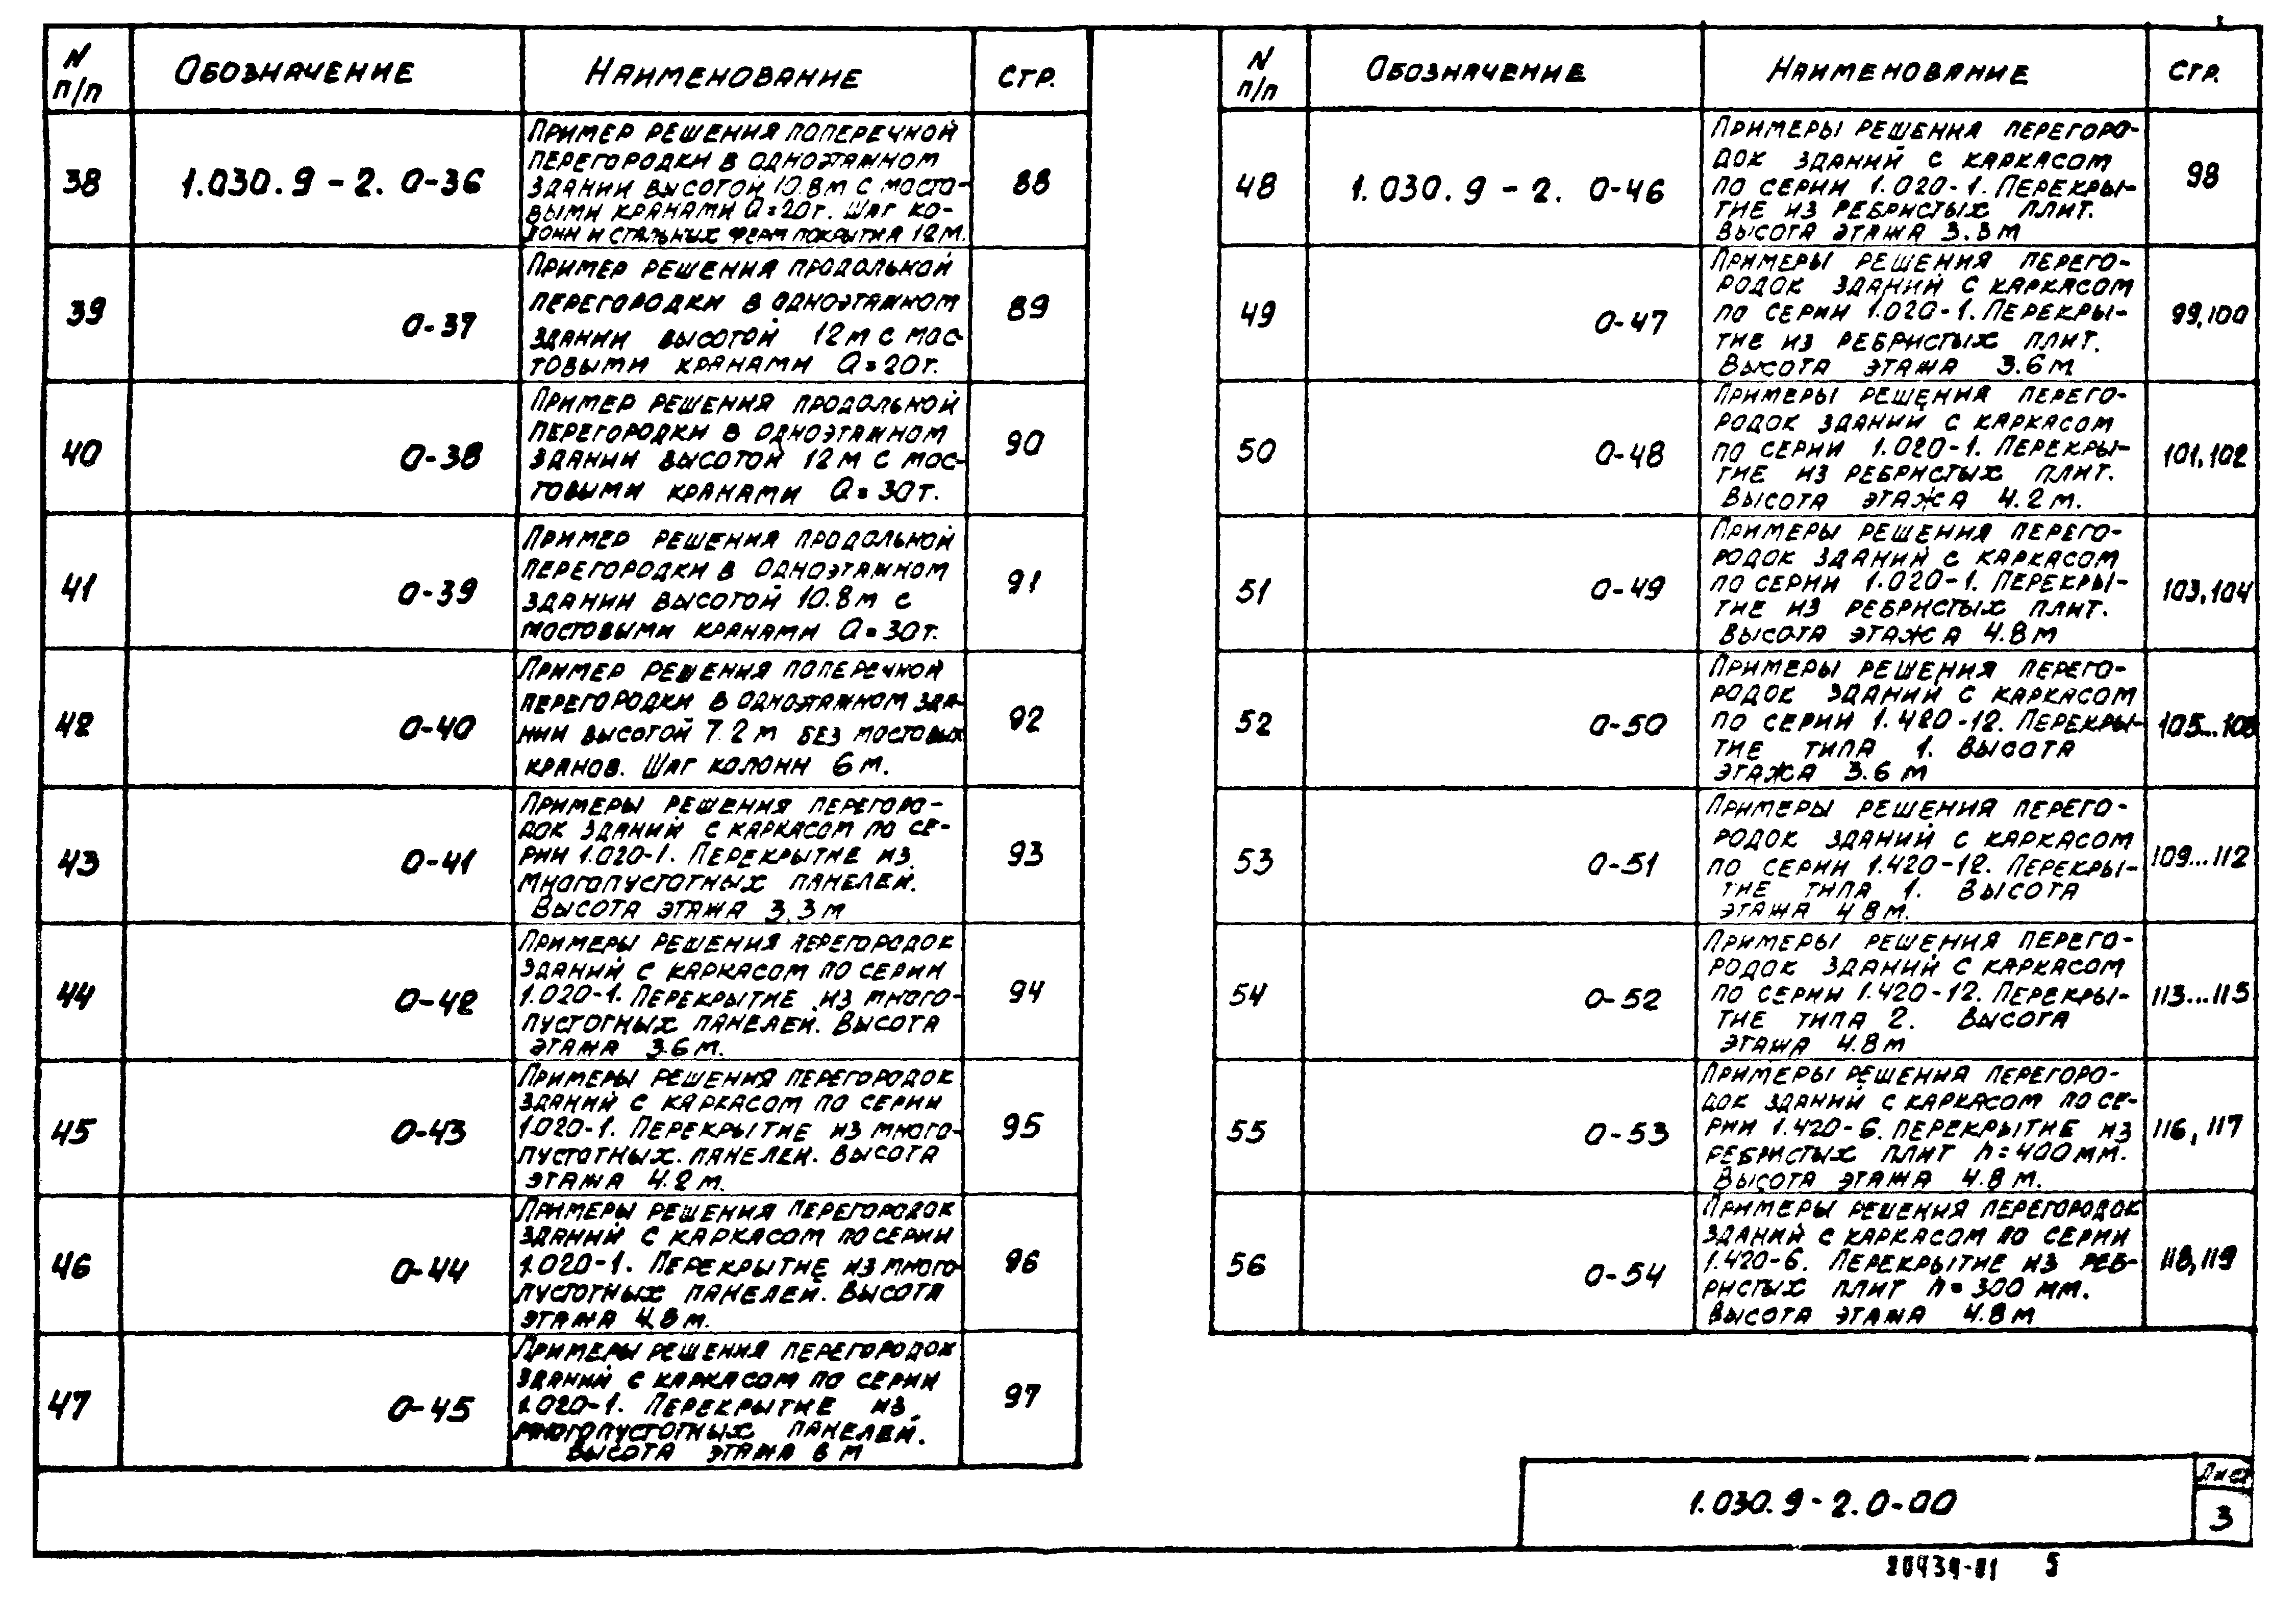 N п/п
Обозначение
Наименование
Стр.
38
1.030.9-2. 0-36
Пример решения поперечной
перегородки в одноэтажном
здании высотой 10.8м с мосто-
выми кранами Q=20т. Шаг ко-
лонн и стальных ферм покрытия 12м.
88
39
0-37
Пример решения продольной
перегородки в одноэтажном
здании высотой 12м с мос-
товыми кранами Q=20т.
89
40
0-38
Пример решения продольной
перегородки в одноэтажном
здании высотой 12м с мос-
товыми кранами Q=30т.
90
41
0-39
Пример решения продольной
перегородки в одноэтажном
здании высотой 10.8м с
мостовыми кранами Q=30т.
91
42
0-40
Пример решения поперечной
перегородки в одноэтажном зда-
нии высотой 7.2м без мостовых
кранов. Шаг колонн 6м.
92
43
0-41
Примеры решения перегоро-
док зданий с каркасом по се-
рии 1.020-1. Перекрытие из
многопустотных панелей.
Высота этажа 3.3м
93
44
0-42
Примеры решения перегородок
зданий с каркасом по серии
1.020-1. Перекрытие из много-
пустотных панелей. Высота
этажа 3.6м.
94
45
0-43
Примеры решения перегородок
зданий с каркасом по серии
1.020-1. Перекрытие из много-
пустотных панелей. Высота
этажа 4.2м.
95
46
0-44
Примеры решения перегородок
зданий с каркасом по серии
1.020-1. Перекрытие из много-
пустотных панелей. Высота
этажа 4.8м.
96
47
0-45
Примеры решения перегородок
зданий с каркасом по серии
1.020-1. Перекрытие из
многопустотных панелей.
Высота этажа 6м
97
N п/п
Обозначение
Наименование
Стр.
48
1.030.9-2. 0-46
Примеры решения перегоро-
док зданий с каркасом
по серии 1.020-1. Перекры-
тие из ребристых плит.
Высота этажа 3.3м
98
49
0-47
Примеры решения перего-
родок зданий с каркасом
по серии 1.020-1. Перекры-
тие из ребристых плит.
Высота этажа 3.6м
99,100
50
0-48
Примеры решения перего-
родок зданий с каркасом
по серии 1.020-1. Перекры-
тие из ребристых плит.
Высота этажа 4.2м.
101,102
51
0-49
Примеры решения перего-
родок зданий с каркасом
по серии 1.020-1. Перекры-
тие из ребристых плит.
Высота этажа 4.8м
103,104
52
0-50
Примеры решения перего-
родок зданий с каркасом
по серии 1.420-12. Перекры-
тие типа 1. Высота
этажа 3.6м
105...108
53
0-51
Примеры решения перего-
родок зданий с каркасом
по серии 1.420-12. Перекры-
тие типа 1. Высота
этажа 4 8м.
109...112
54
0-52
Примеры решения перего-
родок зданий с каркасом
по серии 1.420-12. Перекры-
тие типа 2. Высота
этажа 4.8м
113...115
55
0-53
Примеры решения перегоро-
док зданий с каркасом по се-
рии 1.420-6. Перекрытие из
ребристых плит h=400мм.
Высота этажа 4.8м.
116,117
56
0-54
Примеры решения перегородок
зданий с каркасом по серии
1.420-6. Перекрытие из реб-
ристых плит h=300мм.
Высота этажа 4.8м
118,119
1.030.9-2.0-00
Лист
3
20434-01 5